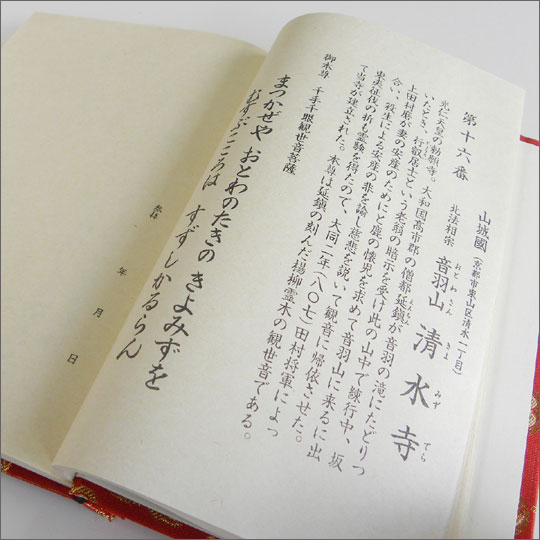 第十六番
山城國(京都市東山区清水一丁目)
北法相宗 音羽山 清水寺
おとわさん きよみずでら
光仁天皇の勅願寺。大和国高市郡の僧都延鎮が音羽の滝にたどりつ
えんちん
いたとき、行叡居士という老翁の暗示を受け此の山中で練行中、坂
上田村麿が妻の安産のためにと鹿の懐児を求めて音羽山に来るに出
合い、殺生による安産の非を諭し慈悲を説いて観音に帰依させた。
東夷征伐の祈も霊験を得たので、大同二年(八〇七)田村将軍によっ
て当寺が建立された。本尊は延鎮の刻んだ楊柳霊木の観世音である。
御本尊 千手千眼観世音菩薩
まつかぜや おとわのたきの きよみずを
むすぶこころは すずしかるらん
参拝 年 月 日